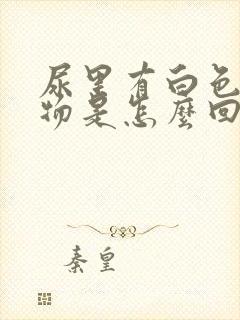 尿里有白色
物是怎麼回
秦皇